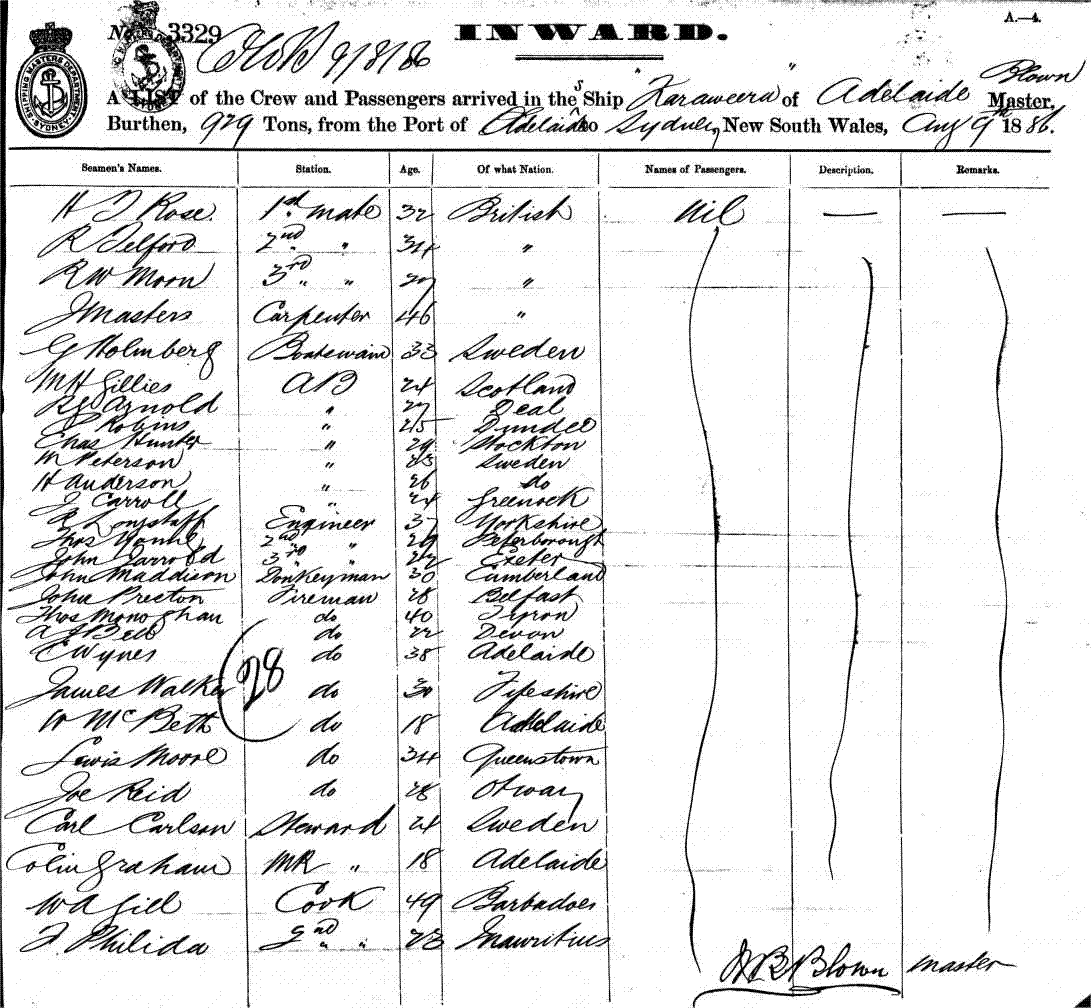 No. 3329 INWARD. A.—4.
9/8/86
SHIPPING MASTERS DEPARTMENT SYDNEY
A LIST of the Crew and Passengers arrived in the SShip "Karaweera" of Adelaide Blown Master,
Burthen, 929 Tons, from the Port of Adelaide to Sydney, New South Wales, Aug 9th 1886.
Seamen's Names. Station. Age. Of what Nation. Names of Passengers. Description. Remarks.
H J Rose. 1st mate 32 British Nil — —
R Telford 2nd " 34 "
R W Moon 3rd " " 27 "
J Masters Carpenter 46 "
G Holmberg Boatswain 33 Sweden
M H Gillies AB 24 Scotland
R G Arnold " 27 Deal
J Robins " 25 Dundee
Chas Hunter " 29 Stockton
M Peterson " 23 Sweden
H Anderson " 26 do
J Carroll " 24 Greenock
R Longstaff Engineer 37 Yorkshire
Thos 2nd " 29 Peterborough
John Jarrold 3rd " 22 Exeter
John Maddison Donkeyman 30 Cumberland
John Preston Fireman 28 Belfast
Thos Monoghan do 40 Tyron
A J Bell do 22 Devon
C Wynes do 38 Adelaide
28
James Walker do 30 Fifeshire
W McBeth do 18 Adelaide
Lewis Moore do 34 Queenstown
Joe Reid do 28 Otway
Carl Carlson Steward 24 Sweden
Colin Graham MR " 18 Adelaide
W A Gill Cook 49 Barbadoes
F Philida 2nd " " 23 Mauritius
J B Blown master